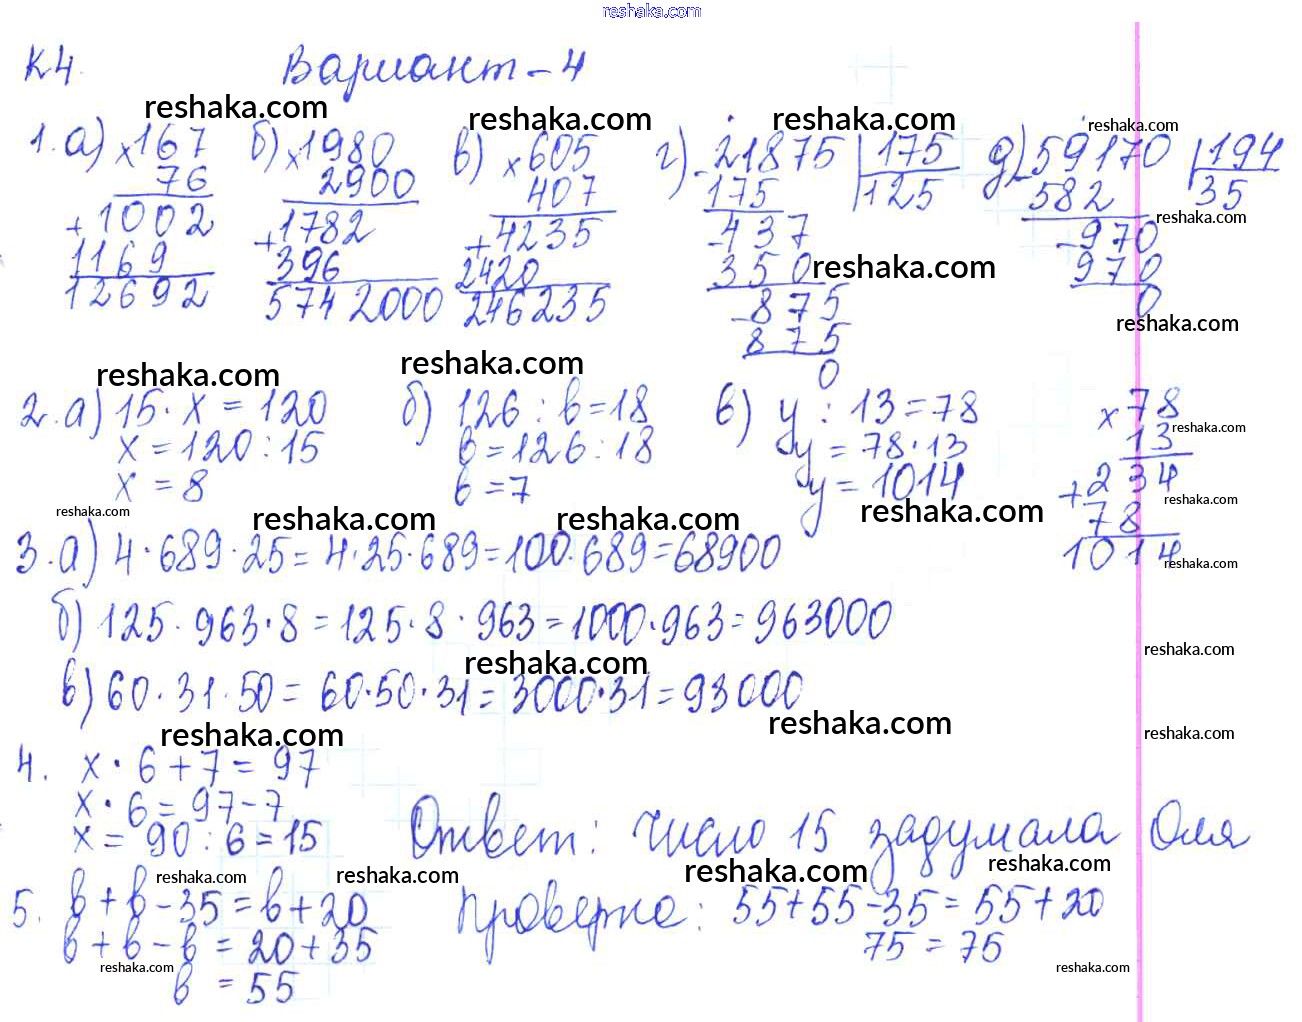 reshaka.com
К4. Вариант-4
reshaka.com reshaka.com reshaka.com reshaka.com
1. а) × 167
76
+ 1002
1169
12692
б) × 1980
2900
+ 1782
396
5742000
в) × 605
407
+ 4235
2420
246235
г) - 21875 | 175
175 125
- 437
350
- 875
875
0
д) - 59170 | 194
582 35
- 970
970
0
reshaka.com
reshaka.com
reshaka.com
reshaka.com reshaka.com
2. а) 15 · x = 120
x = 120 : 15
x = 8
б) 126 : в = 18
в = 126 : 18
в = 7
в) у : 13 = 78
у = 78 · 13
у = 1014
× 78
13
+ 234
78
1014
reshaka.com
reshaka.com
reshaka.com reshaka.com reshaka.com reshaka.com
reshaka.com
3. а) 4 · 689 · 25 = 4 · 25 · 689 = 100 · 689 = 68900
б) 125 · 963 · 8 = 125 · 8 · 963 = 1000 · 963 = 963000
reshaka.com reshaka.com
в) 60 · 31 · 50 = 60 · 50 · 31 = 3000 · 31 = 93000
reshaka.com reshaka.com reshaka.com
4. x · 6 + 7 = 97
x · 6 = 97 - 7
x = 90 : 6 = 15
Ответ: число 15 задумала Оля
reshaka.com reshaka.com reshaka.com reshaka.com
5. в + в - 35 = в + 20
в + в - в = 20 + 35
в = 55
Проверка: 55 + 55 - 35 = 55 + 20
75 = 75
reshaka.com reshaka.com